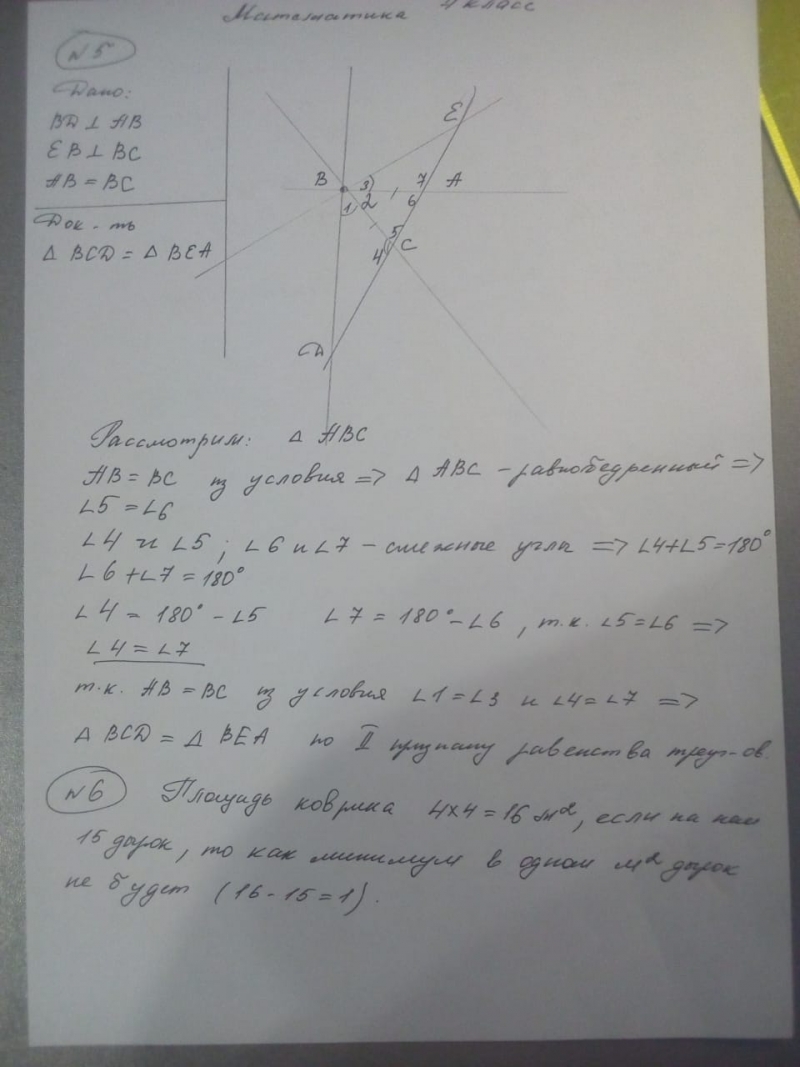 Математика 4 класс
№5
Дано:
BD ⊥ AB
EB ⊥ BC
AB = BC
Док-ть
Δ BCD = Δ BEA
E
B 3 7 A
1 2 6
5
4 C
D
Рассмотрим: Δ ABC
AB = BC из условия => Δ ABC - равнобедренный =>
∠5 = ∠6
∠4 и ∠5 ; ∠6 и ∠7 - смежные углы => ∠4+∠5=180°
∠6 + ∠7 = 180°
∠4 = 180° - ∠5 ∠7 = 180° - ∠6 , т.к. ∠5=∠6 =>
∠4 = ∠7
т.к. AB = BC из условия ∠1=∠3 и ∠4=∠7 =>
Δ BCD = Δ BEA по II признаку равенства треуг-ов.
№6 Площадь коврика 4х4=16 м², если на нам
15 дырок, то как минимум в одном м² дырок
не будет (16-15=1).